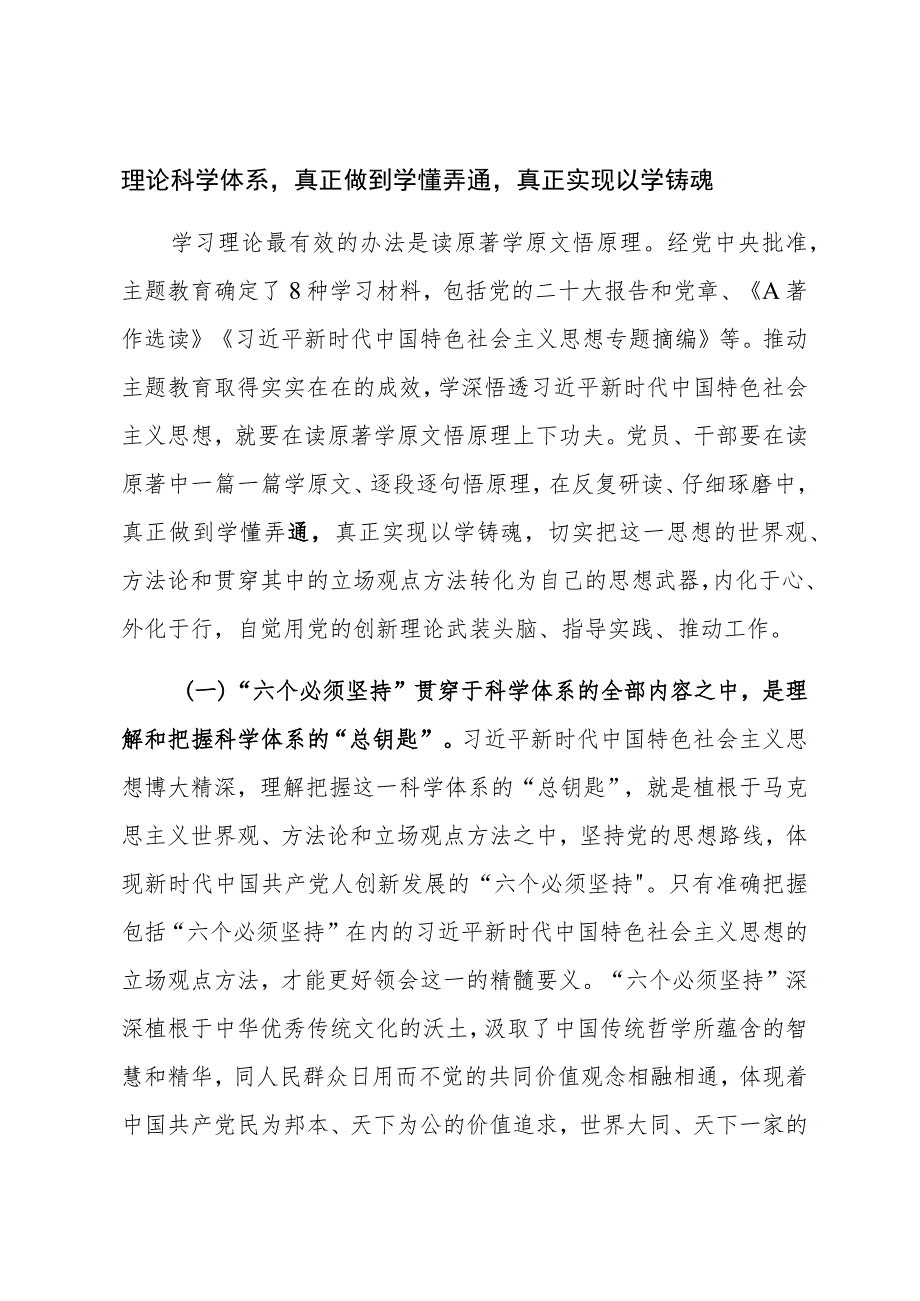 理论科学体系，真正做到学懂弄通，真正实现以学铸魂
学习理论最有效的办法是读原著学原文悟原理。经党中央批准，
主题教育确定了8种学习材料，包括党的二十大报告和党章、《A著
作选读》《习近平新时代中国特色社会主义思想专题摘编》等。推动
主题教育取得实实在在的成效，学深悟透习近平新时代中国特色社会
主义思想，就要在读原著学原文悟原理上下功夫。党员、干部要在读
原著中一篇一篇学原文、逐段逐句悟原理，在反复研读、仔细琢磨中，
真正做到学懂弄通，真正实现以学铸魂，切实把这一思想的世界观、
方法论和贯穿其中的立场观点方法转化为自己的思想武器，内化于心、
外化于行，自觉用党的创新理论武装头脑、指导实践、推动工作。
(一)“六个必须坚持”贯穿于科学体系的全部内容之中，是理
解和把握科学体系的“总钥匙”。习近平新时代中国特色社会主义思
想博大精深，理解把握这一科学体系的“总钥匙”，就是植根于马克
思主义世界观、方法论和立场观点方法之中，坚持党的思想路线，体
现新时代中国共产党人创新发展的“六个必须坚持"。只有准确把握
包括“六个必须坚持”在内的习近平新时代中国特色社会主义思想的
立场观点方法，才能更好领会这一的精髓要义。“六个必须坚持”深
深植根于中华优秀传统文化的沃土，汲取了中国传统哲学所蕴含的智
慧和精华，同人民群众日用而不觉的共同价值观念相融相通，体现着
中国共产党民为邦本、天下为公的价值追求，世界大同、天下一家的